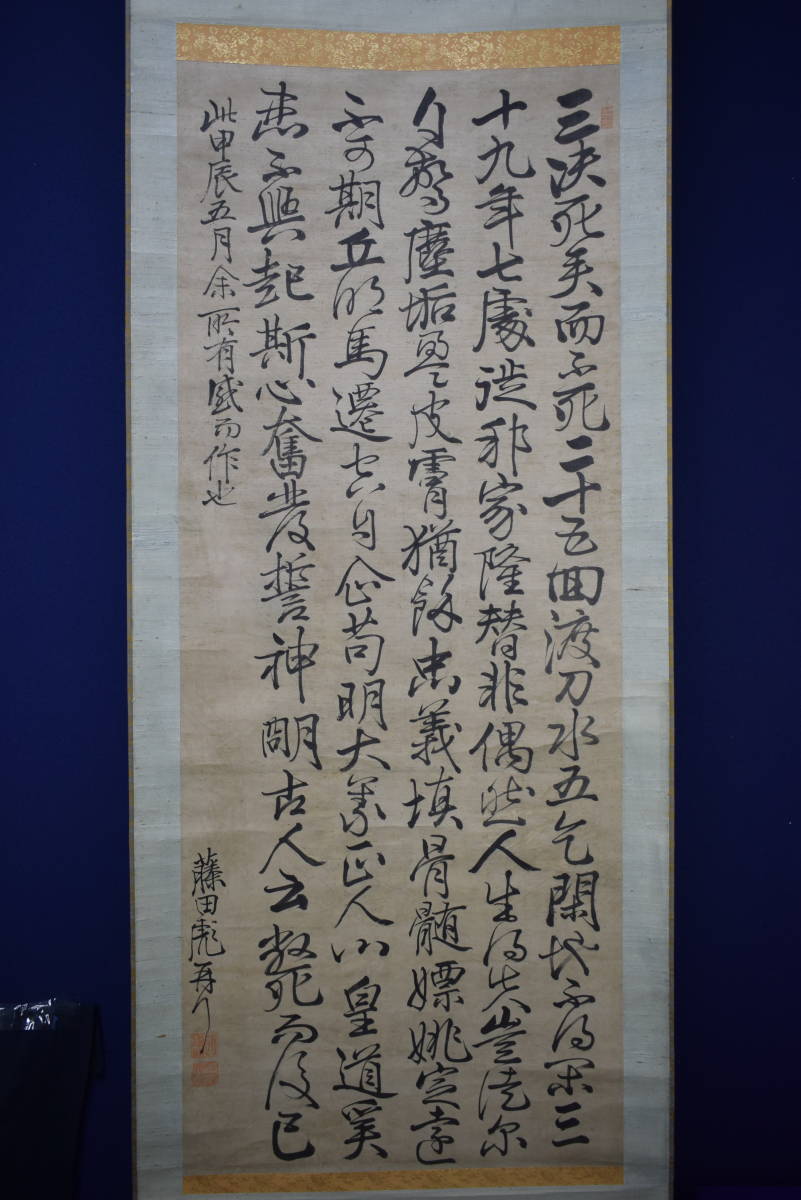 三決死矣而不死二十五回渡刀水五乞閑地不得閑三
十九年七處徙邦家隆替非偶然人生得失豈徒爾
自驚塵垢盈皮膚猶餘忠義填骨髄嫖姚定遠
不可期丘明馬遷空自企苟明大義正人心皇道奚
患不興起斯心奮發誓神明古人云斃死而後已
此甲辰五月余所有感而作也
藤田彪